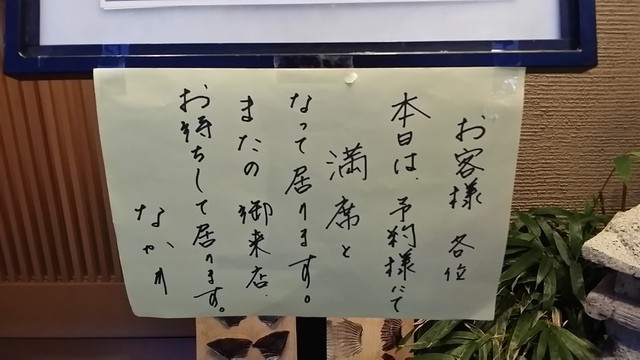 お客様 各位
本日は、予約様にて
満席と
なって居ります。
またの 御来店
お待ちして居ります。